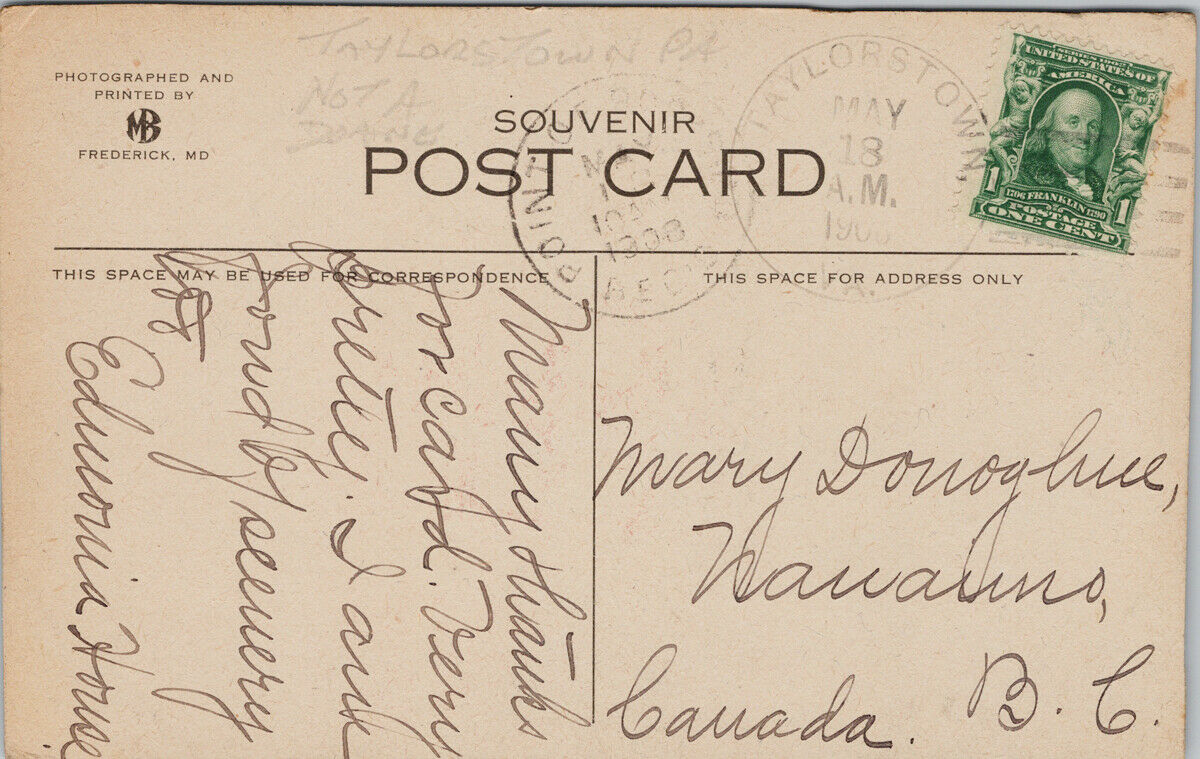 TAYLORSTOWN PA
NOT A
PHOTOGRAPHED AND
PRINTED BY
MB
FREDERICK, MD
SOUVENIR
POST CARD
POINT OF ROCKS
1908
REC'D
TAYLORSTOWN
MAY
18
A.M.
190
PA.
SERIES 1902
UNITED STATES OF
AMERICA
1 1706 FRANKLIN 1790 1
POSTAGE
ONE CENT
THIS SPACE MAY BE USED FOR CORRESPONDENCE
THIS SPACE FOR ADDRESS ONLY
Many thanks
for card. Very
pretty. I am
fond of scenery
Edmonia House.
Mary Donoghue,
Nanaimo,
Canada. B. C.